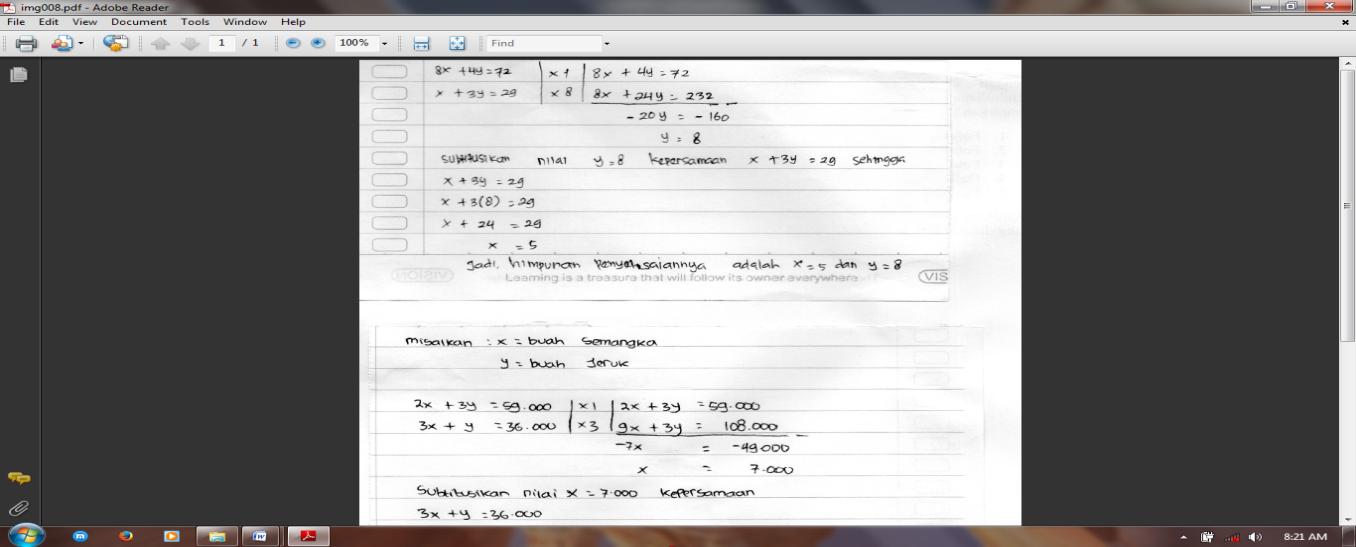 img008.pdf - Adobe Reader
File Edit View Document Tools Window Help
1 / 1 100% Find
8x + 4y = 72 | x 1 | 8x + 4y = 72
x + 3y = 29 | x 8 | 8x + 24y = 232 -
- 20y = - 160
y = 8
Subtitusikan nilai y = 8 kepersamaan x + 3y = 29 sehingga
x + 3y = 29
x + 3(8) = 29
x + 24 = 29
x = 5
Jadi, himpunan penyelesaiannya adalah x = 5 dan y = 8
VISION Learning is a treasure that will follow its owner everywhere VIS
misalkan : x = buah Semangka
y = buah Jeruk
2x + 3y = 59.000 | x1 | 2x + 3y = 59.000
3x + y = 36.000 | x3 | 9x + 3y = 108.000 -
-7x = -49.000
x = 7.000
Subtitusikan nilai x = 7.000 kepersamaan
3x + y = 36.000
8:21 AM